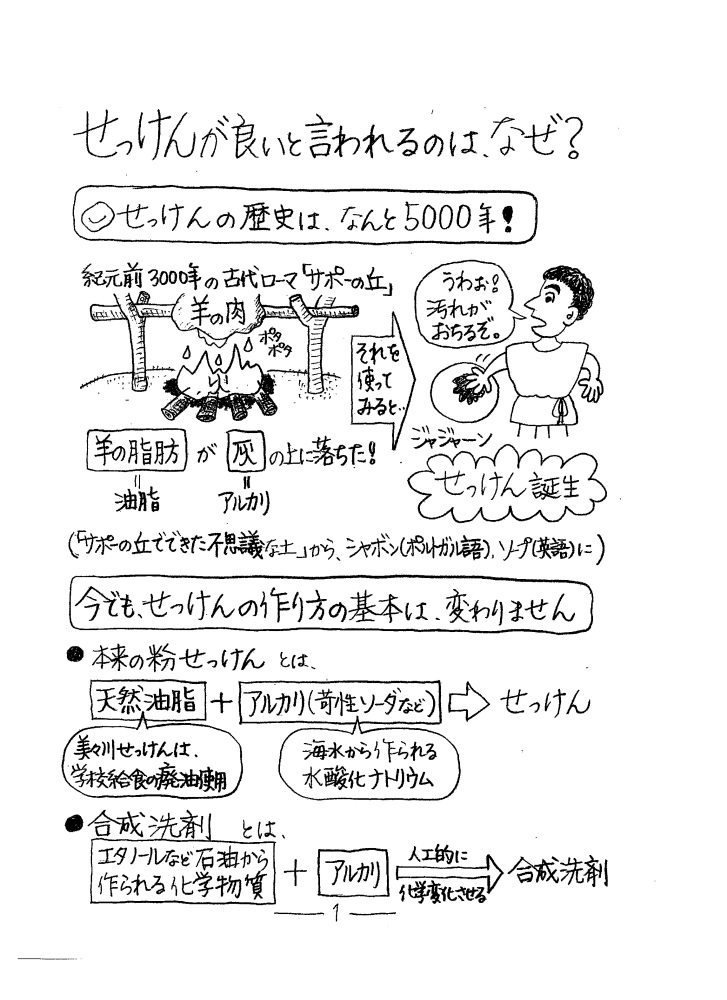 せっけんが良いと言われるのは、なぜ?
せっけんの歴史は、なんと5000年!
紀元前3000年の古代ローマ「サポーの丘」
羊の肉
ポタ
ポタ
それを
使って
みると…
うわぉ!
汚れが
おちるぞ。
ジャジャーン
羊の脂肪 が 灰 の上に落ちた!
=
=
油脂
アルカリ
せっけん誕生
(「サポーの丘でできた不思議な土」から、シャボン(ポルトガル語)、ソープ(英語)に)
今でも、せっけんの作り方の基本は、変わりません
● 本来の粉せっけん とは、
天然油脂 + アルカリ(苛性ソーダなど) せっけん
美々川せっけんは、
学校給食の廃油使用
海水から作られる
水酸化ナトリウム
● 合成洗剤 とは、
エタノールなど石油から
作られる化学物質
+ アルカリ
人工的に
化学変化させる
合成洗剤
1